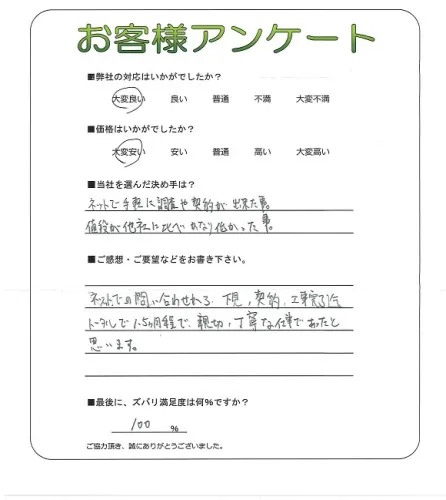 お客様アンケート
■弊社の対応はいかがでしたか？
大変良い 良い 普通 不満 大変不満
■価格はいかがでしたか？
大変安い 安い 普通 高い 大変高い
■当社を選んだ決め手は？
ネットで手軽に調査や契約が出来た事。
値段が他社に比べかなり低かった事。
■ご感想・ご要望などをお書き下さい。
ネットでの問い合わせから、下見、契約、工事完了迄
トータルで1.5ヵ月程で、親切、丁寧な仕事であったと
思います。
■最後に、ズバリ満足度は何%ですか？
100 %
ご協力頂き、誠にありがとうございました。